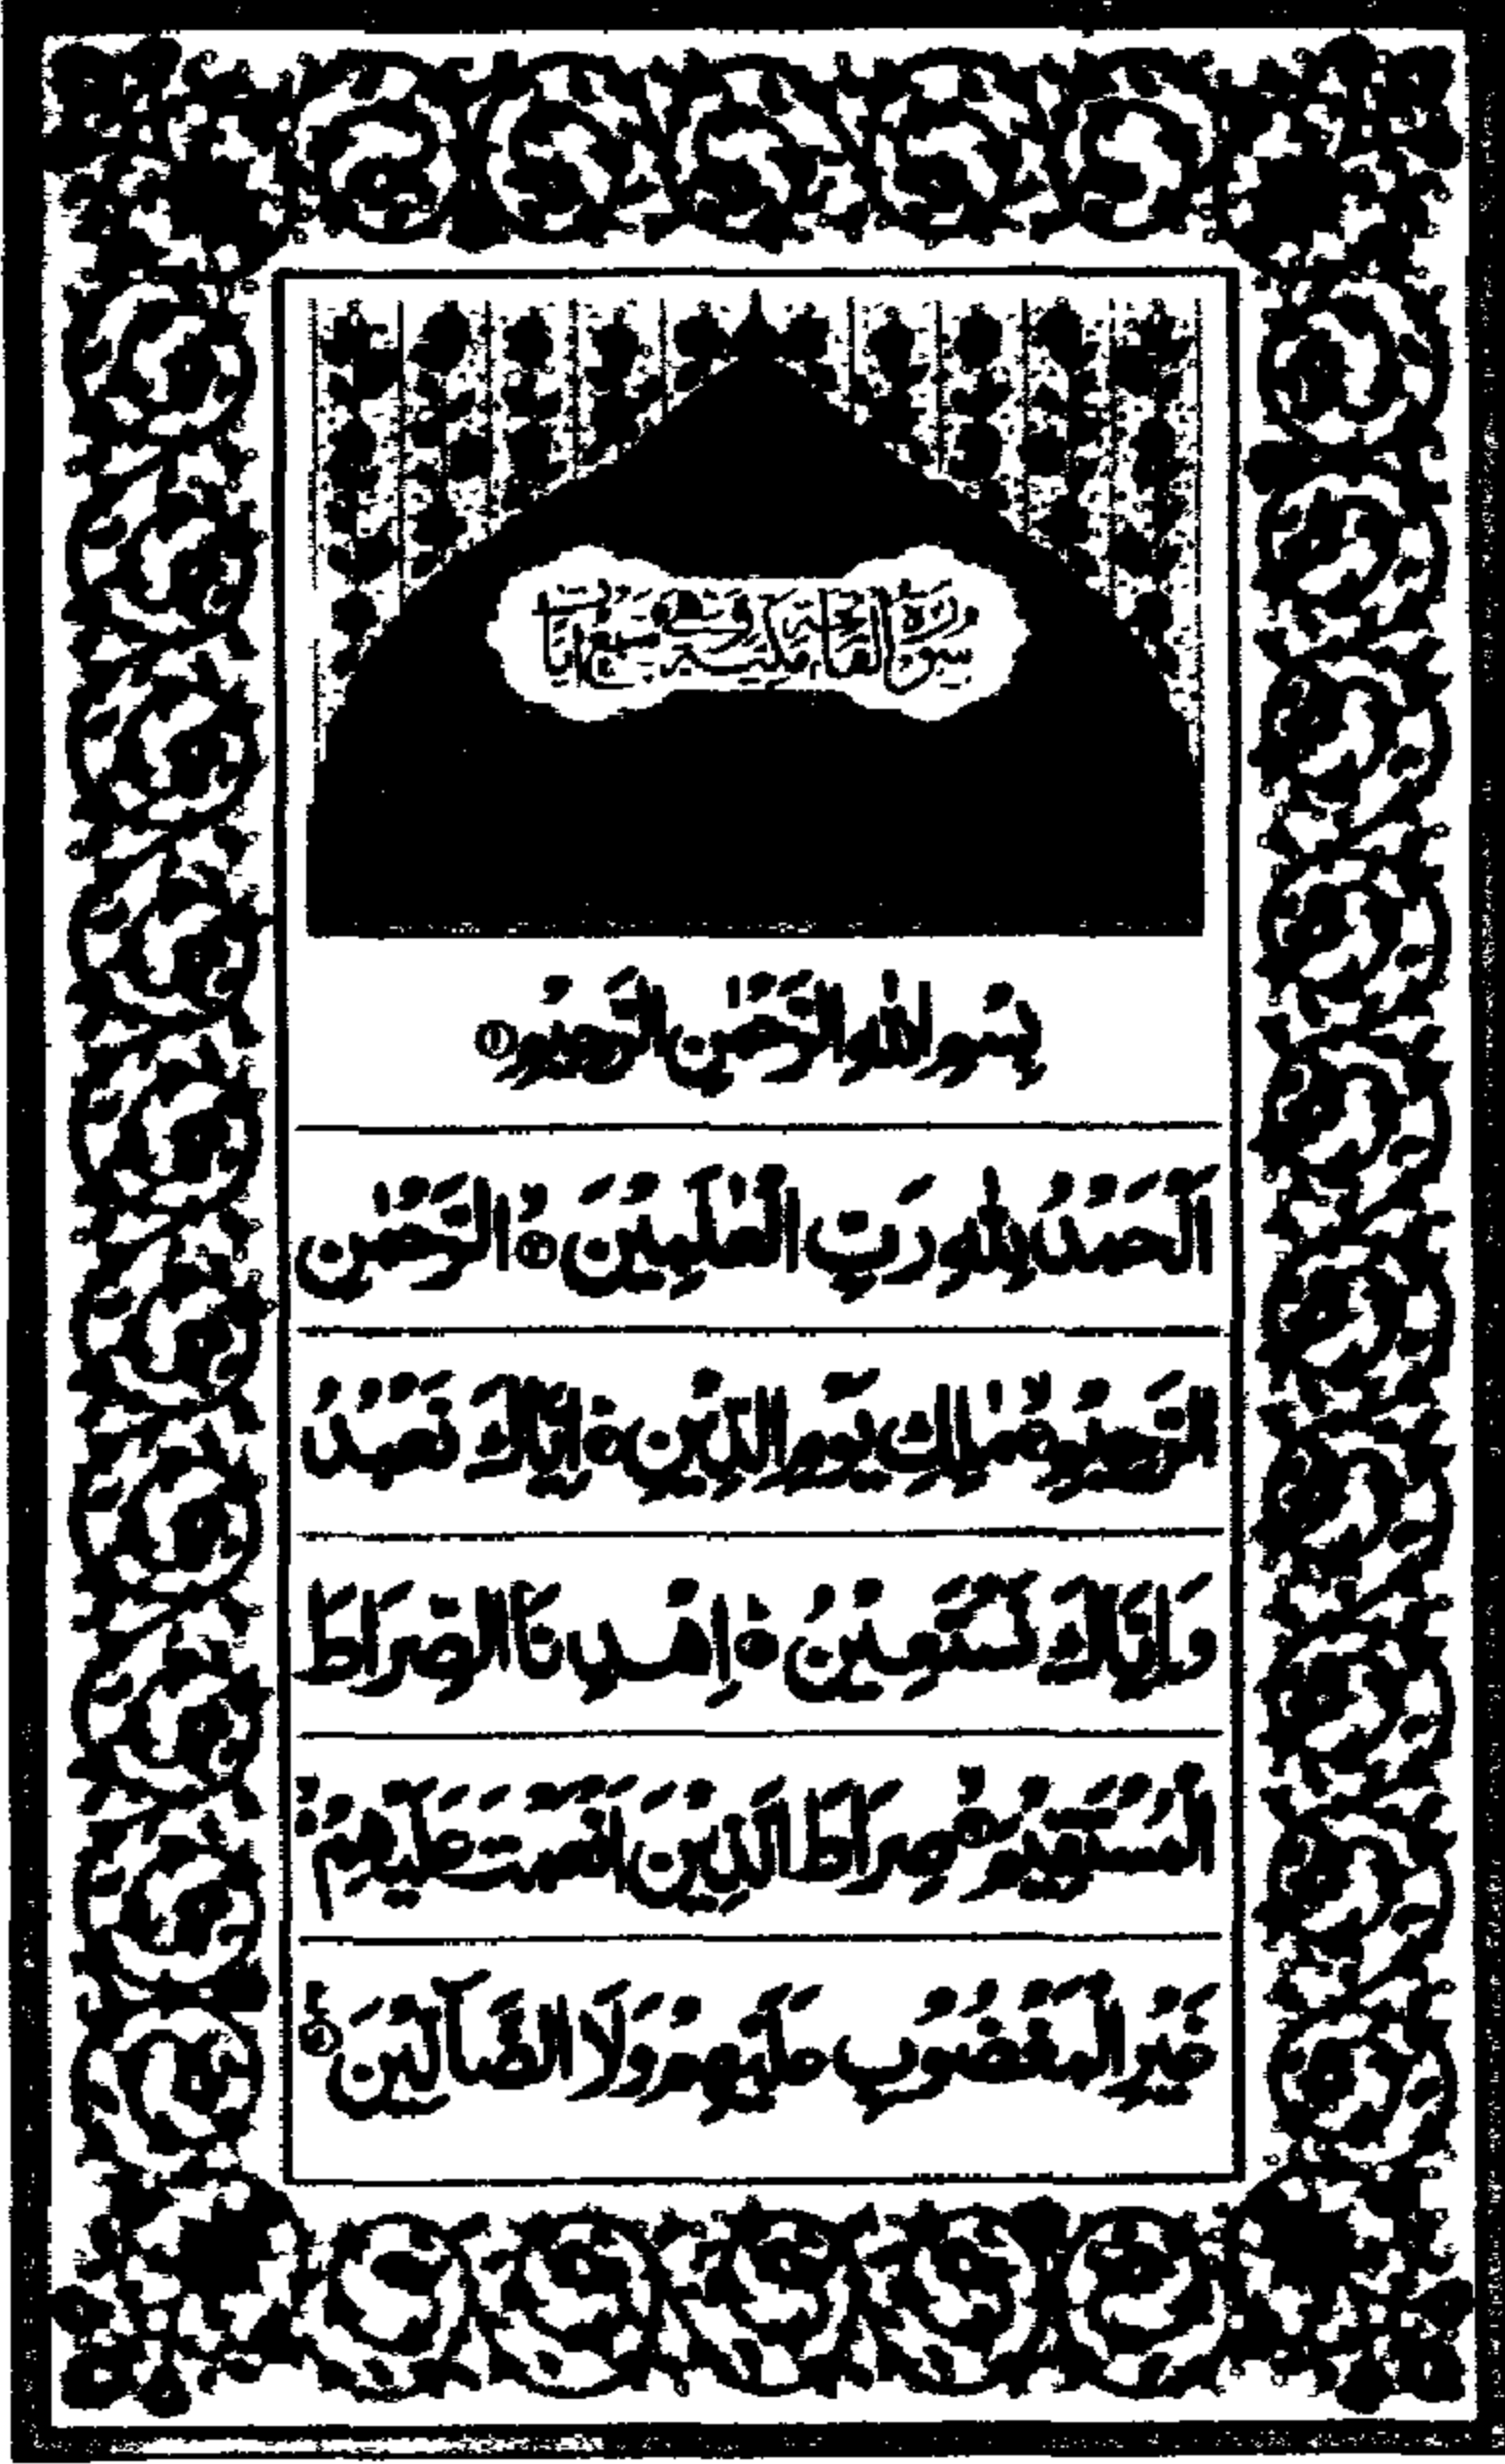 سورة الفاتحة مكية وهي سبع آيات
بِسْمِ اللهِ الرَّحْمٰنِ الرَّحِيْمِ ۝١
اَلْحَمْدُ لِلّٰهِ رَبِّ الْعٰلَمِيْنَ ۝٢ الرَّحْمٰنِ
الرَّحِيْمِ ۝٣ مٰلِكِ يَوْمِ الدِّيْنِ ۝٤ اِيَّاكَ نَعْبُدُ
وَاِيَّاكَ نَسْتَعِيْنُ ۝٥ اِهْدِنَا الصِّرَاطَ
الْمُسْتَقِيْمَ ۝٦ صِرَاطَ الَّذِيْنَ اَنْعَمْتَ عَلَيْهِمْ
غَيْرِ الْمَغْضُوْبِ عَلَيْهِمْ وَلَا الضَّآلِّيْنَ ۝٧